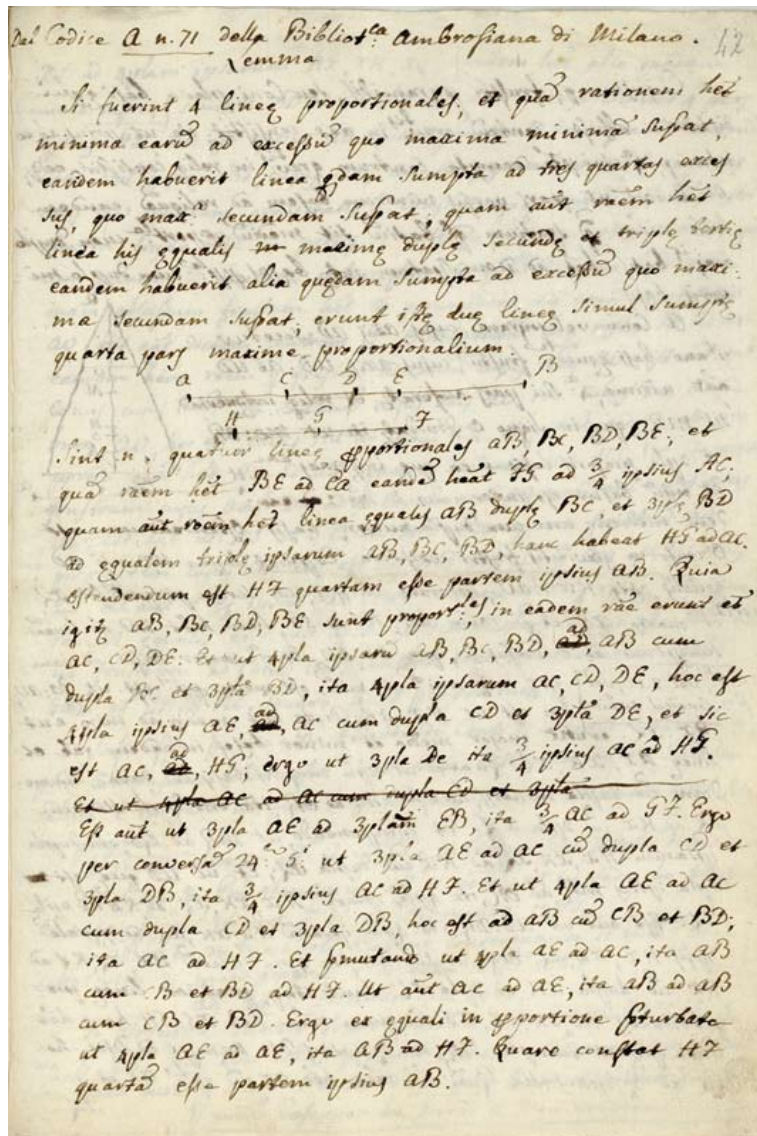 Dal Codice A n. 71 della Bibliot.ca Ambrosiana di Milano. 42
Lemma
Si fuerint 4 lineę proportionales, et quã rationem het
minima earũ ad excessũ quo maxima minimã supat,
eandem habuerit linea qdam sumpta ad tres quartas exces
sus, quo max.ª secundam supat, quam aũt roem het
linea his ęqualis maximę duplę secundę et triplę tertię
eandem habuerit alia quędam sumpta ad excessũ quo maxi
ma secundam supat; erunt ipsę duę lineę simul sumptę
quarta pars maximę proportionalium.
A C D E B
H G F
Sint n. quatuor lineę pportionales AB, BC, BD, BE; et
quã roem het BE ad CA eandẽ heat FG ad 3/4 ipsius AC;
quam aũt roem het linea ęqualis AB duplę BC, et 3plę BD
ad ęqualem triplę ipsarum AB, BC, BD, hanc habeat HG ad AC.
Ostendendum est HF quartam esse partem ipsius AB. Quia
igit AB, BC, BD, BE sunt proport.les, in eadem roe erunt et
AC, CD, DE. Et ut 4pla ipsarũ AB, BC, BD, ad, AB cum
dupla BC et 3plã BD, ita 4pla ipsarum AC, CD, DE, hoc est
4pla ipsius AE, ad, AC cum dupla CD et 3plã DE, et sic
est AC, ad, HG; ergo ut 3pla De ita 3/4 ipsius AC ad HG.
Et ut 4pla AC ad AC cum dupla CD et 3plã
Est aũt ut 3pla AE ad 3plam EB, ita 3/4 AC ad GF. Ergo
per conversã 24.ę 5.i ut 3pla AE ad AC cũ dupla CD et
3pla DB, ita 3/4 ipsius AC ad HF. Et ut 4pla AE ad AC
cum dupla CD et 3pla DB, hoc est ad AB cũ CB et BD;
ita AC ad HF. Et pmutando ut 4pla AE ad AC, ita AB
cum CB et BD ad HF. Ut aũt AC ad AE, ita AB ad AB
cum CB et BD. Ergo ex ęquali in pportione pturbata
ut 4pla AE ad AE, ita AB ad HF. Quare constat HF
quartã esse partem ipsius AB.